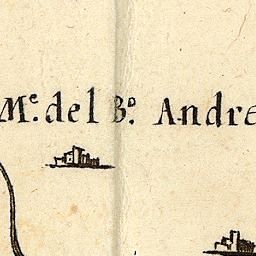 Mᵉ. del Bᵒ. Andre